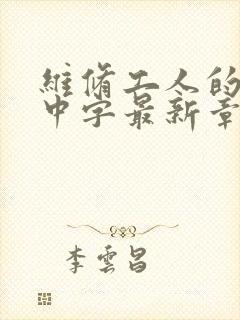 維脩工人的
中字最新章
李雲昌